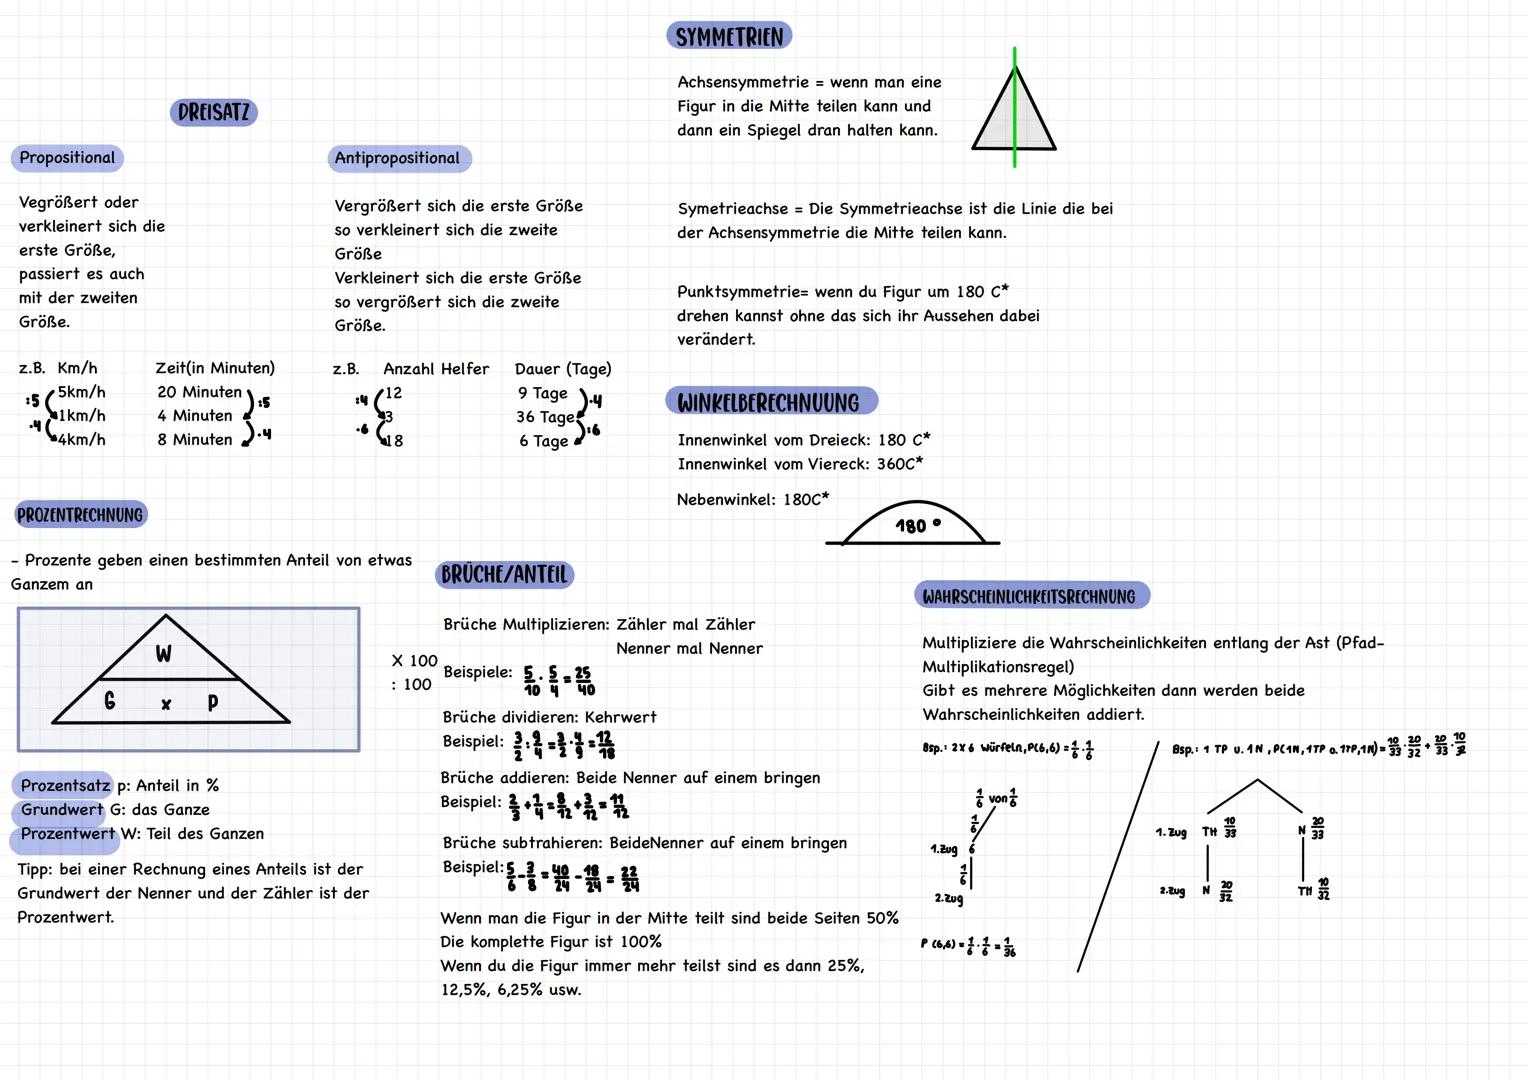 DREISATZ
Propositional
Vegrößert oder
verkleinert sich die
erste Größe,
passiert es auch
mit der zweiten
Größe.
z.B. Km/h Zeit(in Minuten)
:5 5km/h 20 Minuten :5
1km/h 4 Minuten
·4 4km/h 8 Minuten ·4
Antipropositional
Vergrößert sich die erste Größe
so verkleinert sich die zweite
Größe
Verkleinert sich die erste Größe
so vergrößert sich die zweite
Größe.
z.B. Anzahl Helfer Dauer (Tage)
:4 12 9 Tage ·4
3 36 Tage
·6 18 6 Tage :6
SYMMETRIEN
Achsensymmetrie = wenn man eine
Figur in die Mitte teilen kann und
dann ein Spiegel dran halten kann.
Symetrieachse = Die Symmetrieachse ist die Linie die bei
der Achsensymmetrie die Mitte teilen kann.
Punktsymmetrie= wenn du Figur um 180 C*
drehen kannst ohne das sich ihr Aussehen dabei
verändert.
WINKELBERECHNUUNG
Innenwinkel vom Dreieck: 180 C*
Innenwinkel vom Viereck: 360C*
Nebenwinkel: 180C*
180 °
PROZENTRECHNUNG
- Prozente geben einen bestimmten Anteil von etwas
Ganzem an
W
G x P
X 100
: 100
Prozentsatz p: Anteil in %
Grundwert G: das Ganze
Prozentwert W: Teil des Ganzen
Tipp: bei einer Rechnung eines Anteils ist der
Grundwert der Nenner und der Zähler ist der
Prozentwert.
BRÜCHE/ANTEIL
Brüche Multiplizieren: Zähler mal Zähler
Nenner mal Nenner
Beispiele: 5/10 · 5/4 = 25/40
Brüche dividieren: Kehrwert
Beispiel: 3/2 : 9/4 = 3/2 · 4/9 = 12/18
Brüche addieren: Beide Nenner auf einem bringen
Beispiel: 2/3 + 1/4 = 8/12 + 3/12 = 11/12
Brüche subtrahieren: BeideNenner auf einem bringen
Beispiel: 5/6 - 3/8 = 40/24 - 18/24 = 22/24
Wenn man die Figur in der Mitte teilt sind beide Seiten 50%
Die komplette Figur ist 100%
Wenn du die Figur immer mehr teilst sind es dann 25%,
12,5%, 6,25% usw.
WAHRSCHEINLICHKEITSRECHNUNG
Multipliziere die Wahrscheinlichkeiten entlang der Ast (Pfad-
Multiplikationsregel)
Gibt es mehrere Möglichkeiten dann werden beide
Wahrscheinlichkeiten addiert.
Bsp.: 2x6 würfeln, P(6,6) = 1/6 · 1/6
1/6 von 1/6
1/6
1.Zug 6
1/6
2.Zug
P (6,6) = 1/6 · 1/6 = 1/36
Bsp.: 1 TP u. 1N, P(1N,1TP o. 1TP,1N) = 10/33 · 20/32 + 20/33 · 10/32
1. Zug TH 10/33 N 20/33
2.Zug N 20/32 TH 10/32